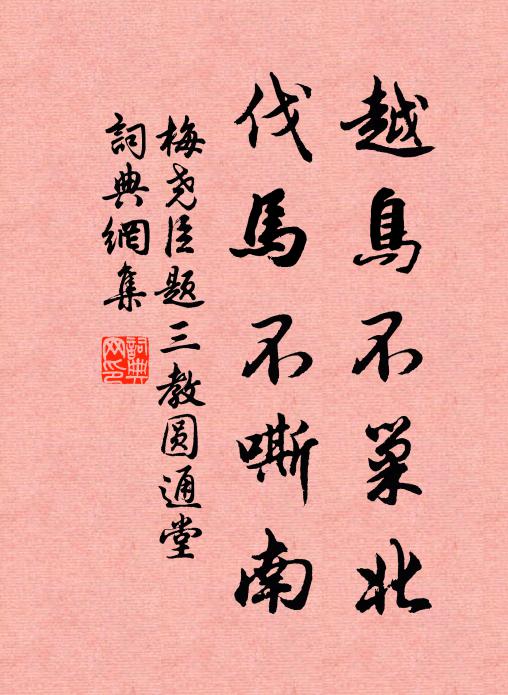 越鳥不巢北
伐馬不嘶南
梅堯臣題三教圓通堂
詞典網集
詞典
网印